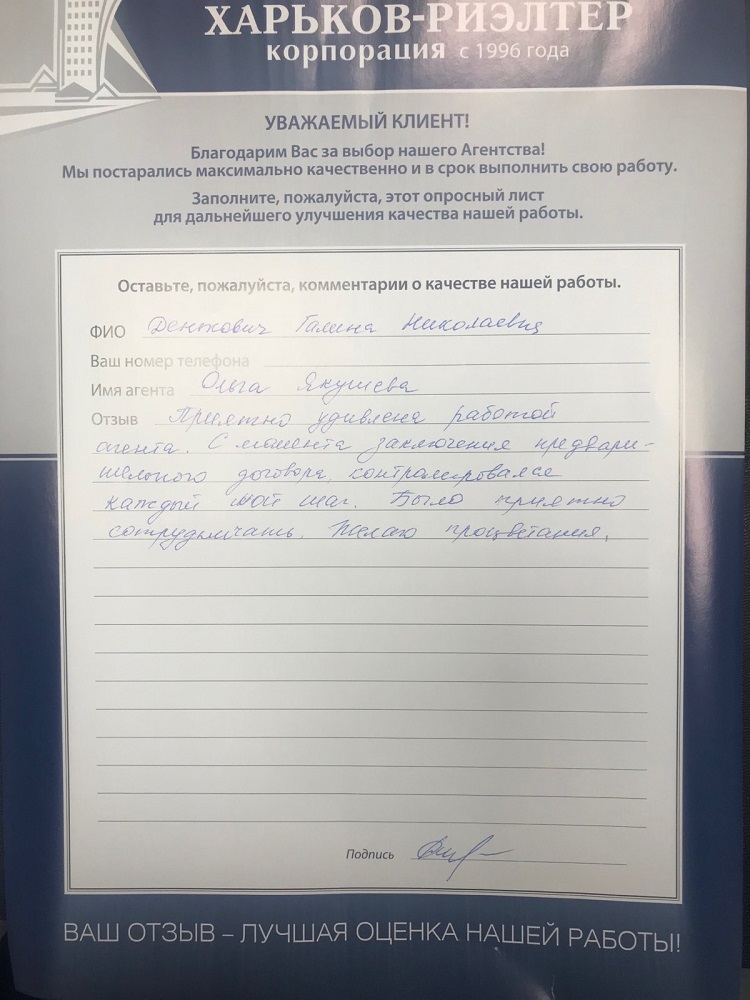 ХАРЬКОВ-РИЭЛТЕР
корпорация с 1996 года
УВАЖАЕМЫЙ КЛИЕНТ!
Благодарим Вас за выбор нашего Агентства!
Мы постарались максимально качественно и в срок выполнить свою работу.
Заполните, пожалуйста, этот опросный лист
для дальнейшего улучшения качества нашей работы.
Оставьте, пожалуйста, комментарии о качестве нашей работы.
ФИО Денькович Галина Николаевна
Ваш номер телефона
Имя агента Ольга Якушева
Отзыв Приятно удивлена работой
агента. С момента заключения предвари-
тельного договора контролировался
каждый мой шаг. Было приятно
сотрудничать. Желаю процветания.
Подпись
ВАШ ОТЗЫВ – ЛУЧШАЯ ОЦЕНКА НАШЕЙ РАБОТЫ!